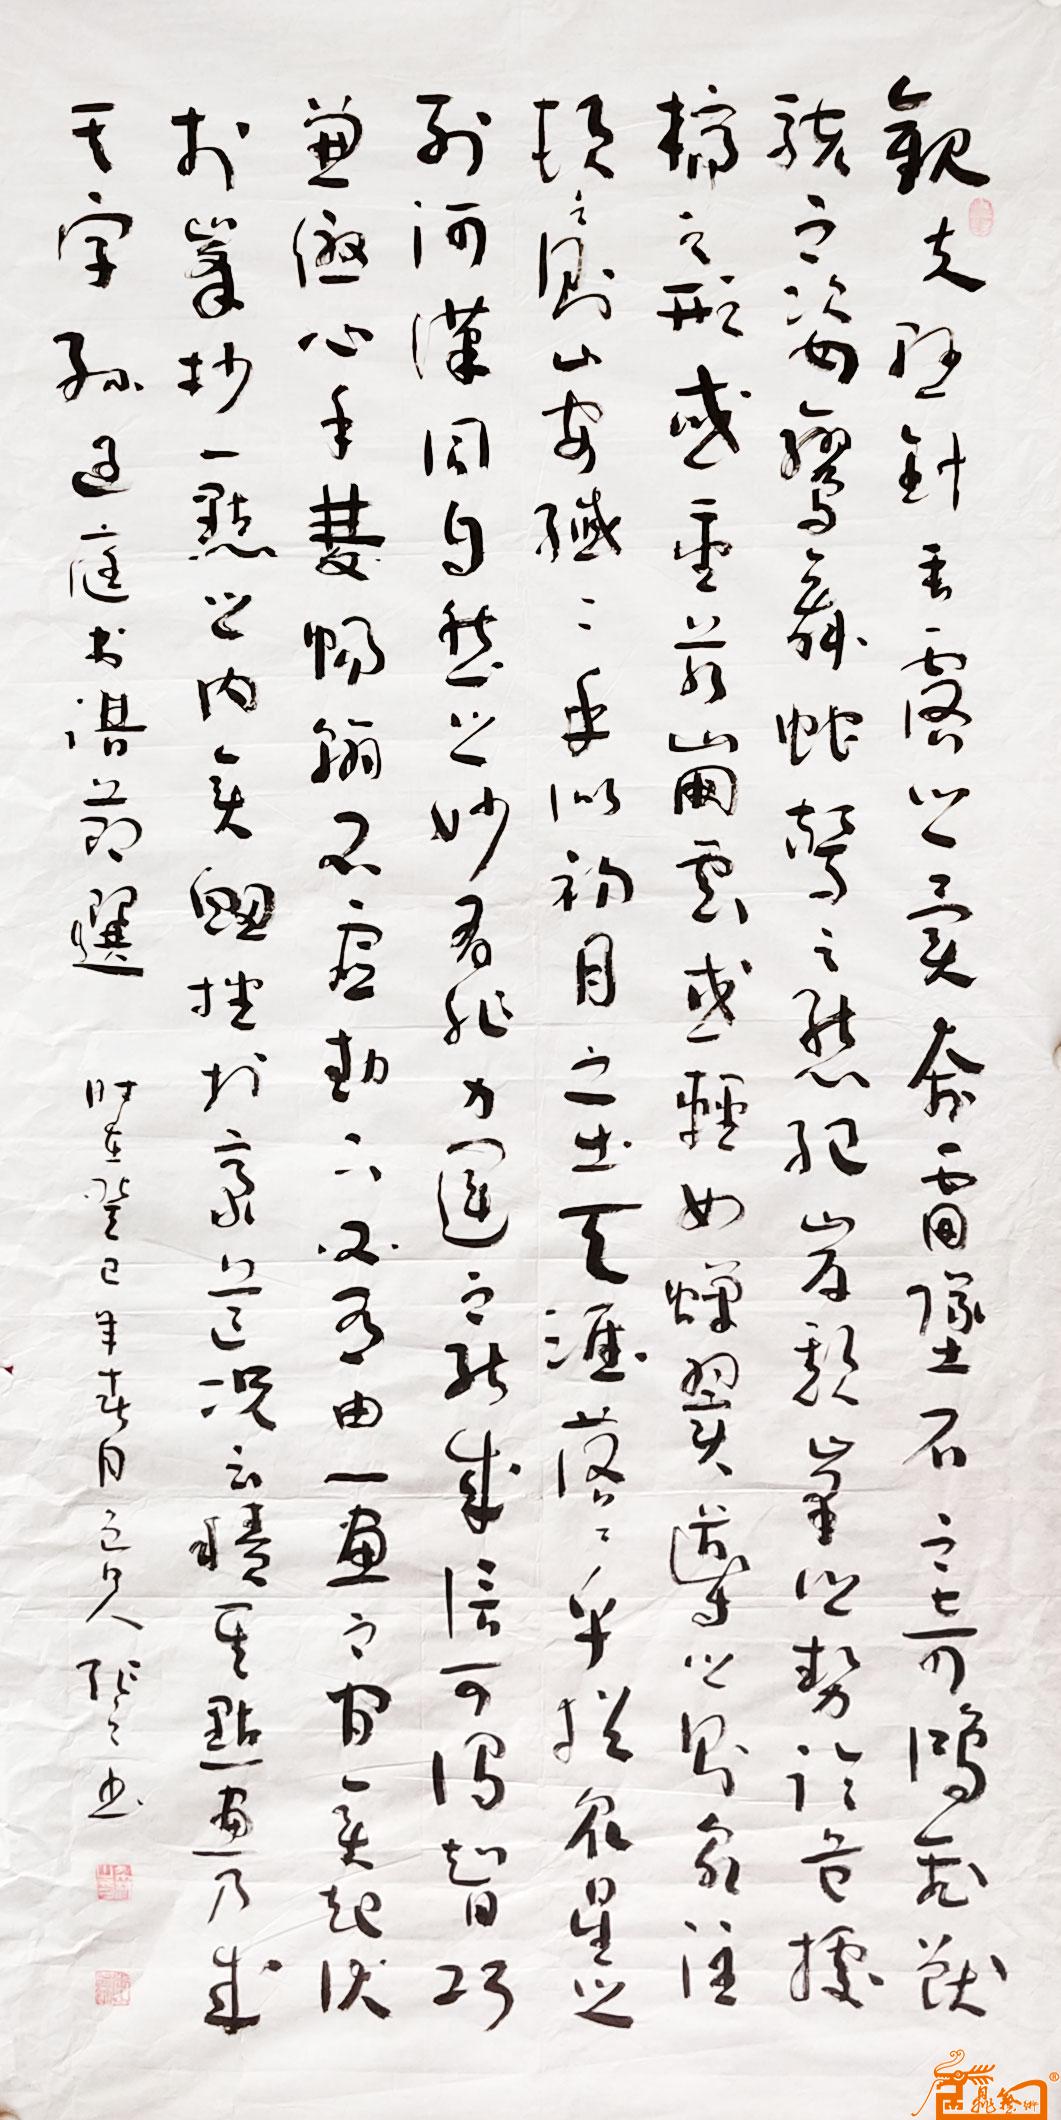 觀夫懸針垂露之異奔雷墜石之奇鴻飛獸
駭之姿鸞舞蛇驚之態絕岸頹峯之勢臨危據
槁之形或重若崩雲或輕如蟬翼導之則泉注
頓之則山安纖〻乎似初月之出天涯落〻乎猶衆星之
列河漢同自然之妙有非力運之能成信可謂智巧
兼優心手雙暢翰不虛動下必有由一畫之間變起伏
於峯杪一點之內變衄挫於豪芒況云積其點畫乃成
其字 孫過庭書譜節選 時在癸巳年春月